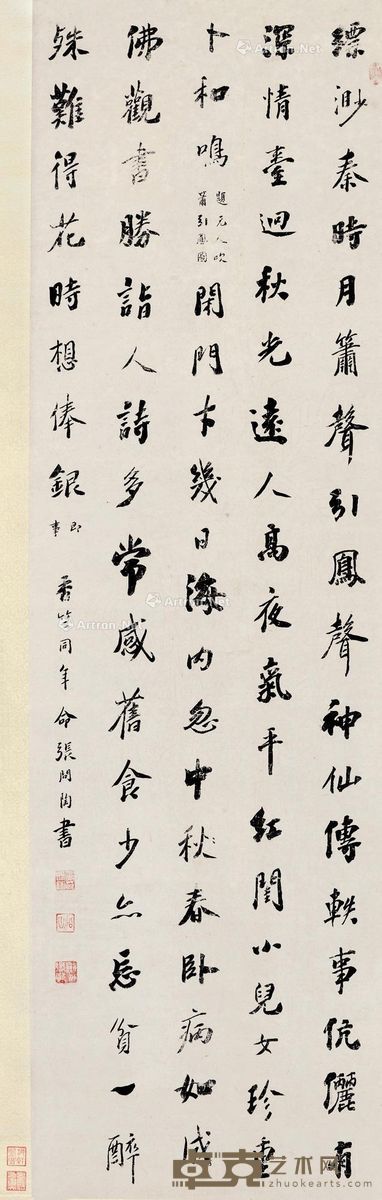 缥渺秦時月簫聲引鳳聲神仙傳軼事伉儷有
深情臺迥秋光遠人高夜氣平紅閨小兒女珍重
卜和鳴 題元人吹簫引鳳圖 閑門才幾日海内忽中秋春卧病如成
佛觀書勝詣人詩多常感舊食少亦忘貧一醉
殊難得花時想俸銀 即事 香竺同年命張問陶書
Artron.Net
卓克艺术网
www.zhuokearts.com